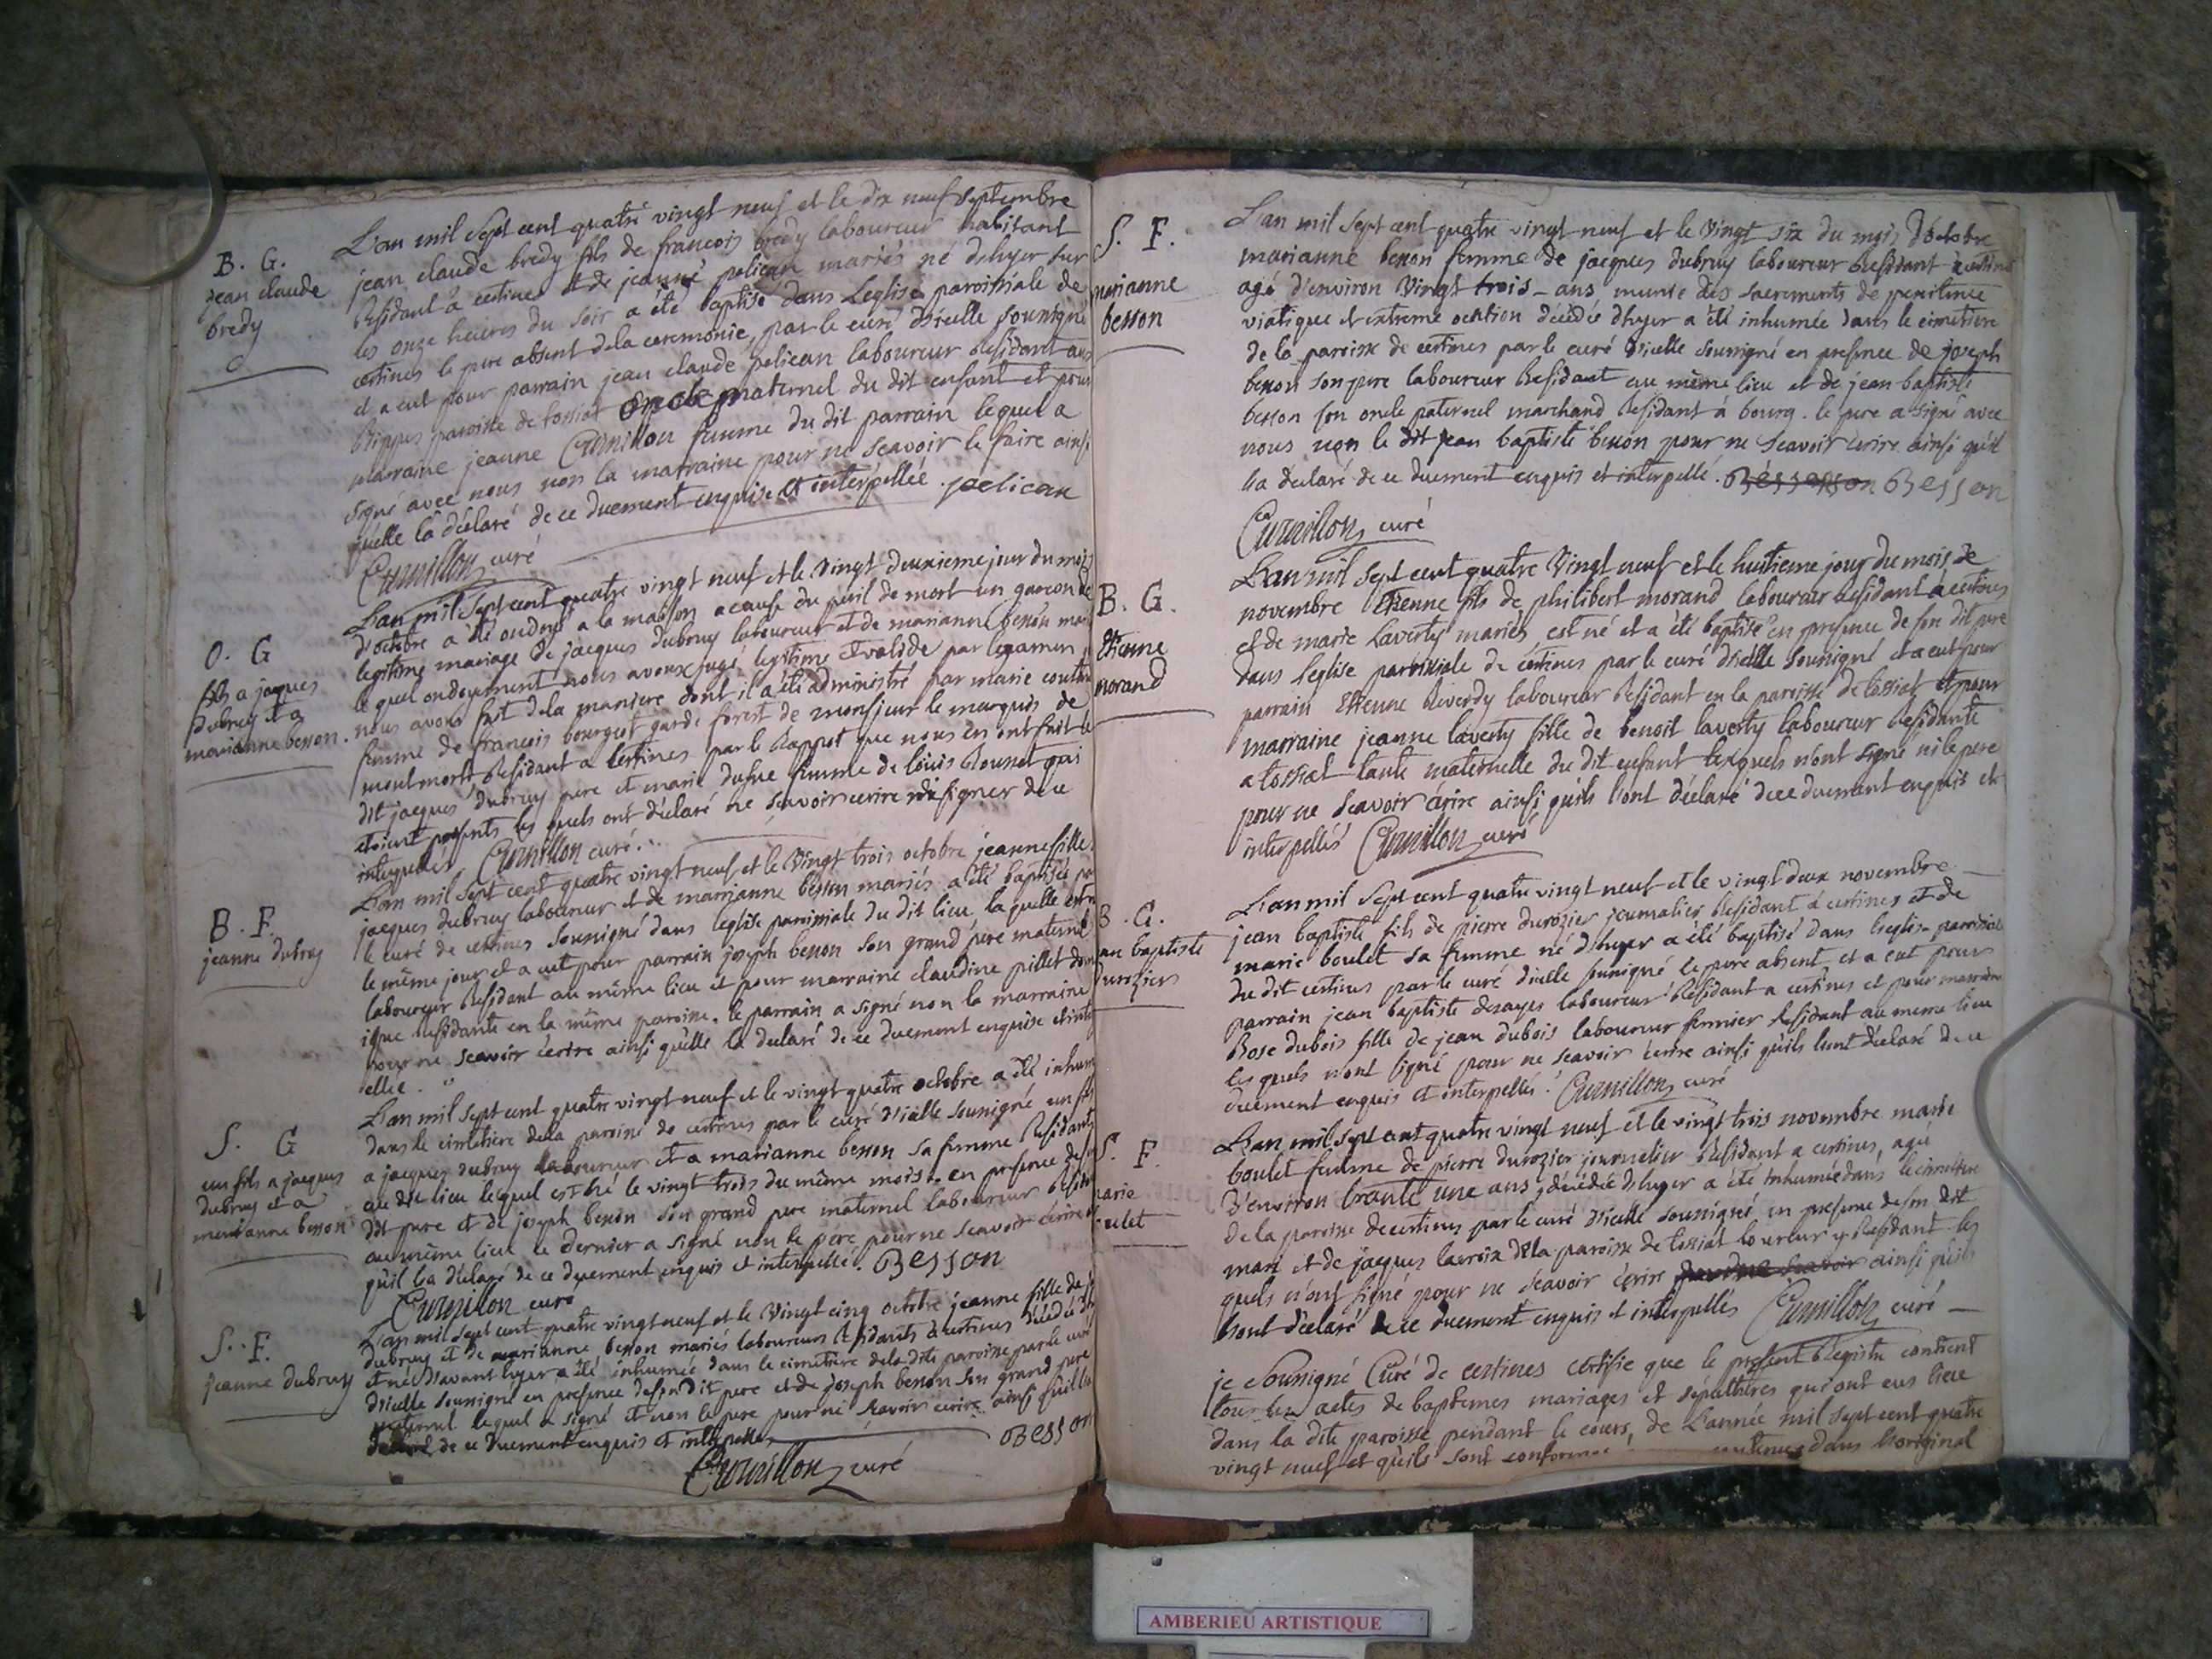 B. G.
jean claude
bredy
L'an mil sept cent quatre vingt neuf et le dix neuf septembre
jean claude bredy fils de francois bredy laboureur habitant
Residant a certines et de jeanne pelican mariés né dehyer sur
les onze heures du soir a été baptisé dans Leglise paroissiale de
certines le pere absent dela ceremonie, par le curé d'icelle soussigné
et a eut pour parrain jean claude pelican laboureur Residant aux
Rippes paroisse de tossiat oncle maternel du dit enfant et pour
marraine jeanne Curnillon femme du dit parrain lequel a
signé avec nous non la marraine pour ne scavoir le faire ainsi
qu'elle la déclaré de ce duement enquise et interpellée. pelican
Curnillon curé
O. G
fils a jaques
dubruy et a
marianne besson.
L'an mil sept cent quatre vingt neuf et le vingt deuxieme jour du mois
d'octobre a été ondoyé a la maison a cause du peril de mort un garcon de
legitime mariage de jacques dubruy laboureur et de marianne besson
le quel ondoyement nous avons jugé legitime et valide par lexamen
nous avons fait dela maniere dont il a été administré par marie
femme de francois bourgeot garde forest de monsieur le marquis de
montmort Residant a certines par le Rapport que nous en ont fait le
dit jacques dubruy pere et marie femme de louis Rounet qui
etoient presents les quels ont déclaré ne scavoir ecrire ni signer de ce
interpellés. Curnillon curé.
B. F.
jeanne dubruy
L'an mil sept cent quatre vingt neuf et le vingt trois octobre jeanne fille
jacques dubruy laboureur et de marianne besson mariés a été baptisée
le curé de certines soussigné dans leglise paroissiale du dit lieu, la quelle
le même jour et a eut pour parrain joseph besson son grand pere maternel
laboureur Residant au même lieu et pour marraine claudine pillet
ique Residante en la même paroisse. le parrain a signé non la marraine
pour ne scavoir écrire ainsi qu'elle la declaré de ce duement enquise et
ellée.
S. G
un fils a jacques
dubruy et a
marianne besson
L'an mil sept cent quatre vingt neuf et le vingt quatre octobre a été
dans le cimetiere dela paroisse de certines par le curé d'icelle soussigné un fils
a jacques dubruy laboureur et a marianne besson sa femme Residants
au dit lieu lequel est né le vingt trois du même mois. en presence de
dit pere et de joseph besson son grand pere maternel laboureur
au même lieu ce dernier a signé non le pere pour ne scavoir écrire
qu'il la déclaré de ce duement enquis et interpellé. Besson
Curnillon curé
S. F.
jeanne dubruy
L'an mil sept cent quatre vingt neuf et le vingt cinq octobre jeanne fille de
dubruy et de marianne besson mariés laboureurs Residants a certines
et née d'avant hyer a été inhumée dans le cimetiere dela dite paroisse par le curé
d'icelle soussigné en presence de son dit pere et de joseph besson son grand pere
maternel lequel a signé et non le pere pour ne scavoir ecrire ainsi qu'il la
declaré de ce duement enquis et interpellés
Besson
Curnillon curé
S. F.
marianne
besson
L'an mil sept cent quatre vingt neuf et le vingt six du mois d'octobre
marianne besson femme de jacques dubruy laboureur Residant a certines
agé d'environ vingt trois ans munie des sacrements de penitence
viatique et extreme onction décédée dhyer a été inhumée dans le cimetiere
de la paroisse de certines par le curé d'icelle soussigné en presence de joseph
besson son pere laboureur Residant au même lieu et de jean baptiste
besson son oncle paternel marchand Residant à bourg. le pere a signé avec
nous non le dit jean baptiste besson pour ne scavoir écrire ainsi qu'il
la declaré de ce duement enquis et interpellé. Besson
Curnillon curé
B. G.
Etienne
morand
L'an mil sept cent quatre vingt neuf et le huitieme jour du mois de
novembre Etienne fils de philibert morand laboureur Residant a certines
et de marie Laverty mariés est né et a été baptisé en presence de son dit pere
dans leglise paroissiale de certines par le curé d'icelle soussigné et a eut pour
parrain Etienne Reverdy laboureur Residant en la paroisse de tossiat et pour
marraine jeanne laverty fille de benoit laverty laboureur Residante
a tossiat tante maternelle du dit enfant lesquels n'ont signé ni le pere
pour ne scavoir écrire ainsi qu'ils l'ont déclaré de ce duement enquis et
interpellés Curnillon curé
B. G.
an baptiste
durozier
L'an mil sept cent quatre vingt neuf et le vingt deux novembre
jean baptiste fils de pierre durozier journalier Residant à certines et de
marie boulet sa femme né dhyer a été baptisé dans leglise paroissiale
du dit certines par le curé d'icelle soussigné le pere absent et a eut pour
parrain jean baptiste desayes laboureur Residant a certines et pour marraine
Rose dubois fille de jean dubois laboureur fermier Residant au même lieu
les quels n'ont signé pour ne scavoir écrire ainsi qu'ils l'ont déclaré de ce
duement enquis et interpellés. Curnillon curé
S. F.
marie
boulet
L'an mil sept cent quatre vingt neuf et le vingt trois novembre marie
boulet femme de pierre durozier journalier Residant a certines, agé
d'environ trante une ans, décédée dhyer a été inhumée dans le cimetiere
de la paroisse de certines par le curé d'icelle soussigné en presence de son dit
mari et de jacques lacroix dela paroisse de tossiat y Residant les
quels n'ont signé pour ne scavoir écrire ainsi qu'ils
l'ont déclaré de ce duement enquis et interpellés Curnillon curé
je soussigné Curé de certines certifie que le present Registre contient
tous les actes de baptemes mariages et sépultures qui ont eus lieu
dans la dite paroisse pendant le cours de L'année mil sept cent quatre
vingt neuf et qu'ils sont conformes contenus dans l'original
AMBERIEU ARTISTIQUE